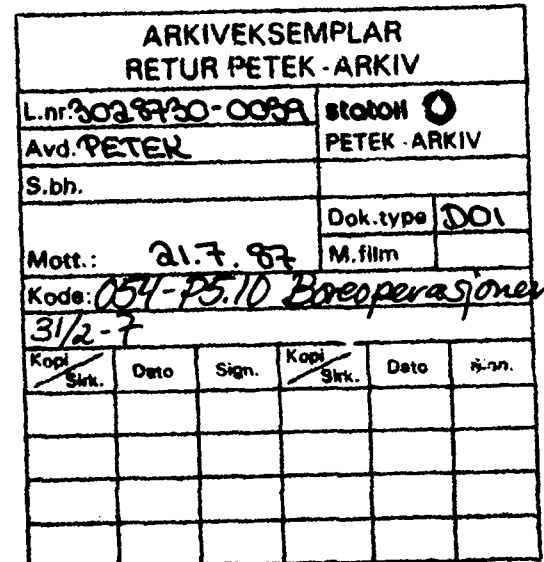 ARKIVEKSEMPLAR
RETUR PETEK - ARKIV
L.nr: 3028730-0039 statoil
Avd. PETEK PETEK - ARKIV
S.bh.
Dok.type DOI
Mott.: 21.7.87 M.film
Kode: 054-P5.10 Boreoperasjoner
31/2-7
Kopi/Sirk. Dato Sign. Kopi/Sirk. Dato Sign.